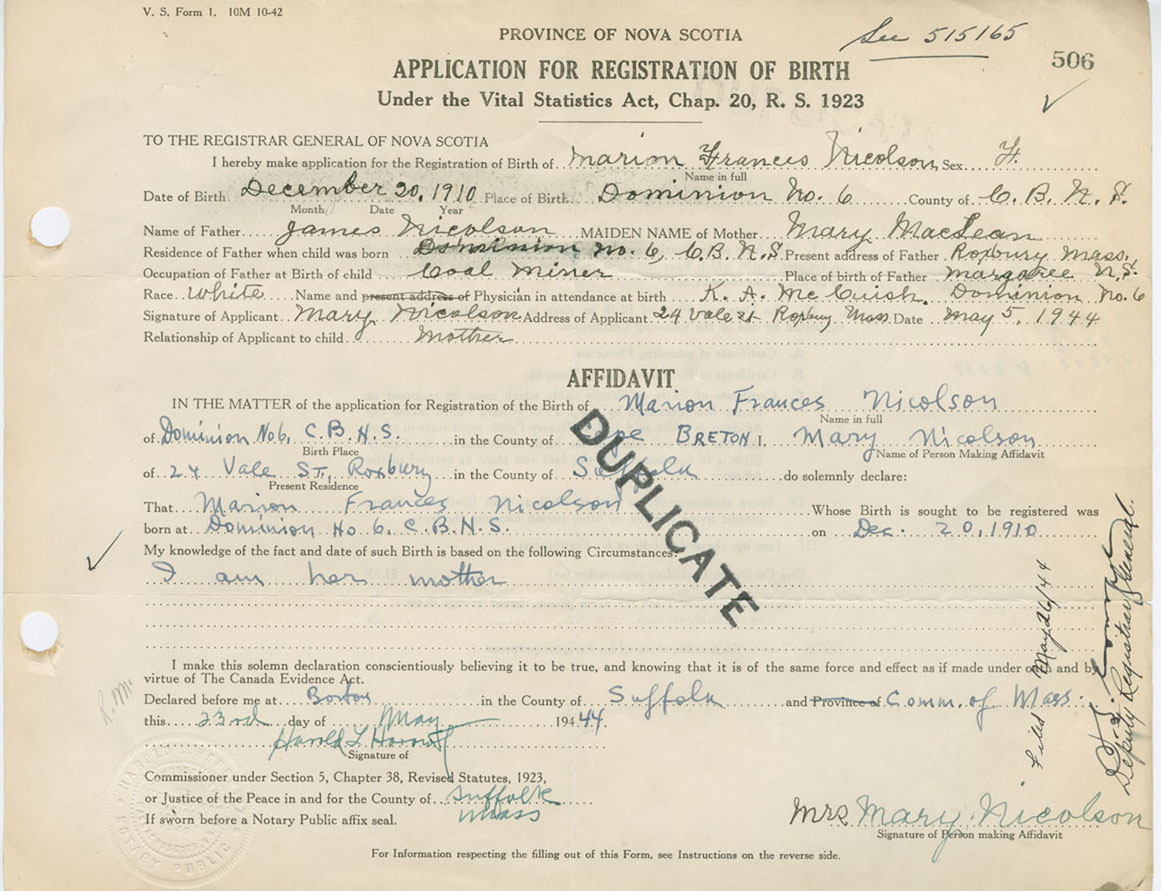 V. S. Form 1. 10M 10-42
PROVINCE OF NOVA SCOTIA
See 515165
506
APPLICATION FOR REGISTRATION OF BIRTH
Under the Vital Statistics Act, Chap. 20, R. S. 1923
TO THE REGISTRAR GENERAL OF NOVA SCOTIA
I hereby make application for the Registration of Birth of Marion Frances Nicolson Sex F.
Name in full
Date of Birth December 20, 1910 Place of Birth Dominion No. 6 County of C. B. N. S.
Month Date Year
Name of Father James Nicolson MAIDEN NAME of Mother Mary MacLean
Residence of Father when child was born Dominion No. 6, C. B. N. S. Present address of Father Roxbury Mass.
Occupation of Father at Birth of child Coal Miner Place of birth of Father Margaree N. S.
Race White Name and present address of Physician in attendance at birth K. A. McCuish. Dominion No. 6
Signature of Applicant Mary Nicolson Address of Applicant 24 Vale St Roxbury Mass Date May 5, 1944
Relationship of Applicant to child Mother
AFFIDAVIT
IN THE MATTER of the application for Registration of the Birth of Marion Frances Nicolson
Name in full
of Dominion No 6, C. B. N. S. in the County of Cape BRETON I, Mary Nicolson
Birth Place Name of Person Making Affidavit
of 24 Vale ST, Roxbury in the County of Suffolk do solemnly declare:
Present Residence
DUPLICATE
That Marion Frances Nicolson Whose Birth is sought to be registered was
born at Dominion No 6, C. B. N. S. on Dec. 20, 1910
My knowledge of the fact and date of such Birth is based on the following Circumstances:
I am her mother
I make this solemn declaration conscientiously believing it to be true, and knowing that it is of the same force and effect as if made under oath and by
virtue of The Canada Evidence Act.
Declared before me at Boston in the County of Suffolk and Province of Comm. of Mass.
this 23rd day of May 194 44
Harold L
Signature of
Commissioner under Section 5, Chapter 38, Revised Statutes, 1923,
or Justice of the Peace in and for the County of Suffolk
Mass
If sworn before a Notary Public affix seal.
Mrs Mary Nicolson
Signature of Person making Affidavit
For Information respecting the filling out of this Form, see Instructions on the reverse side.
Filed May 26/44
Deputy Registrar General.